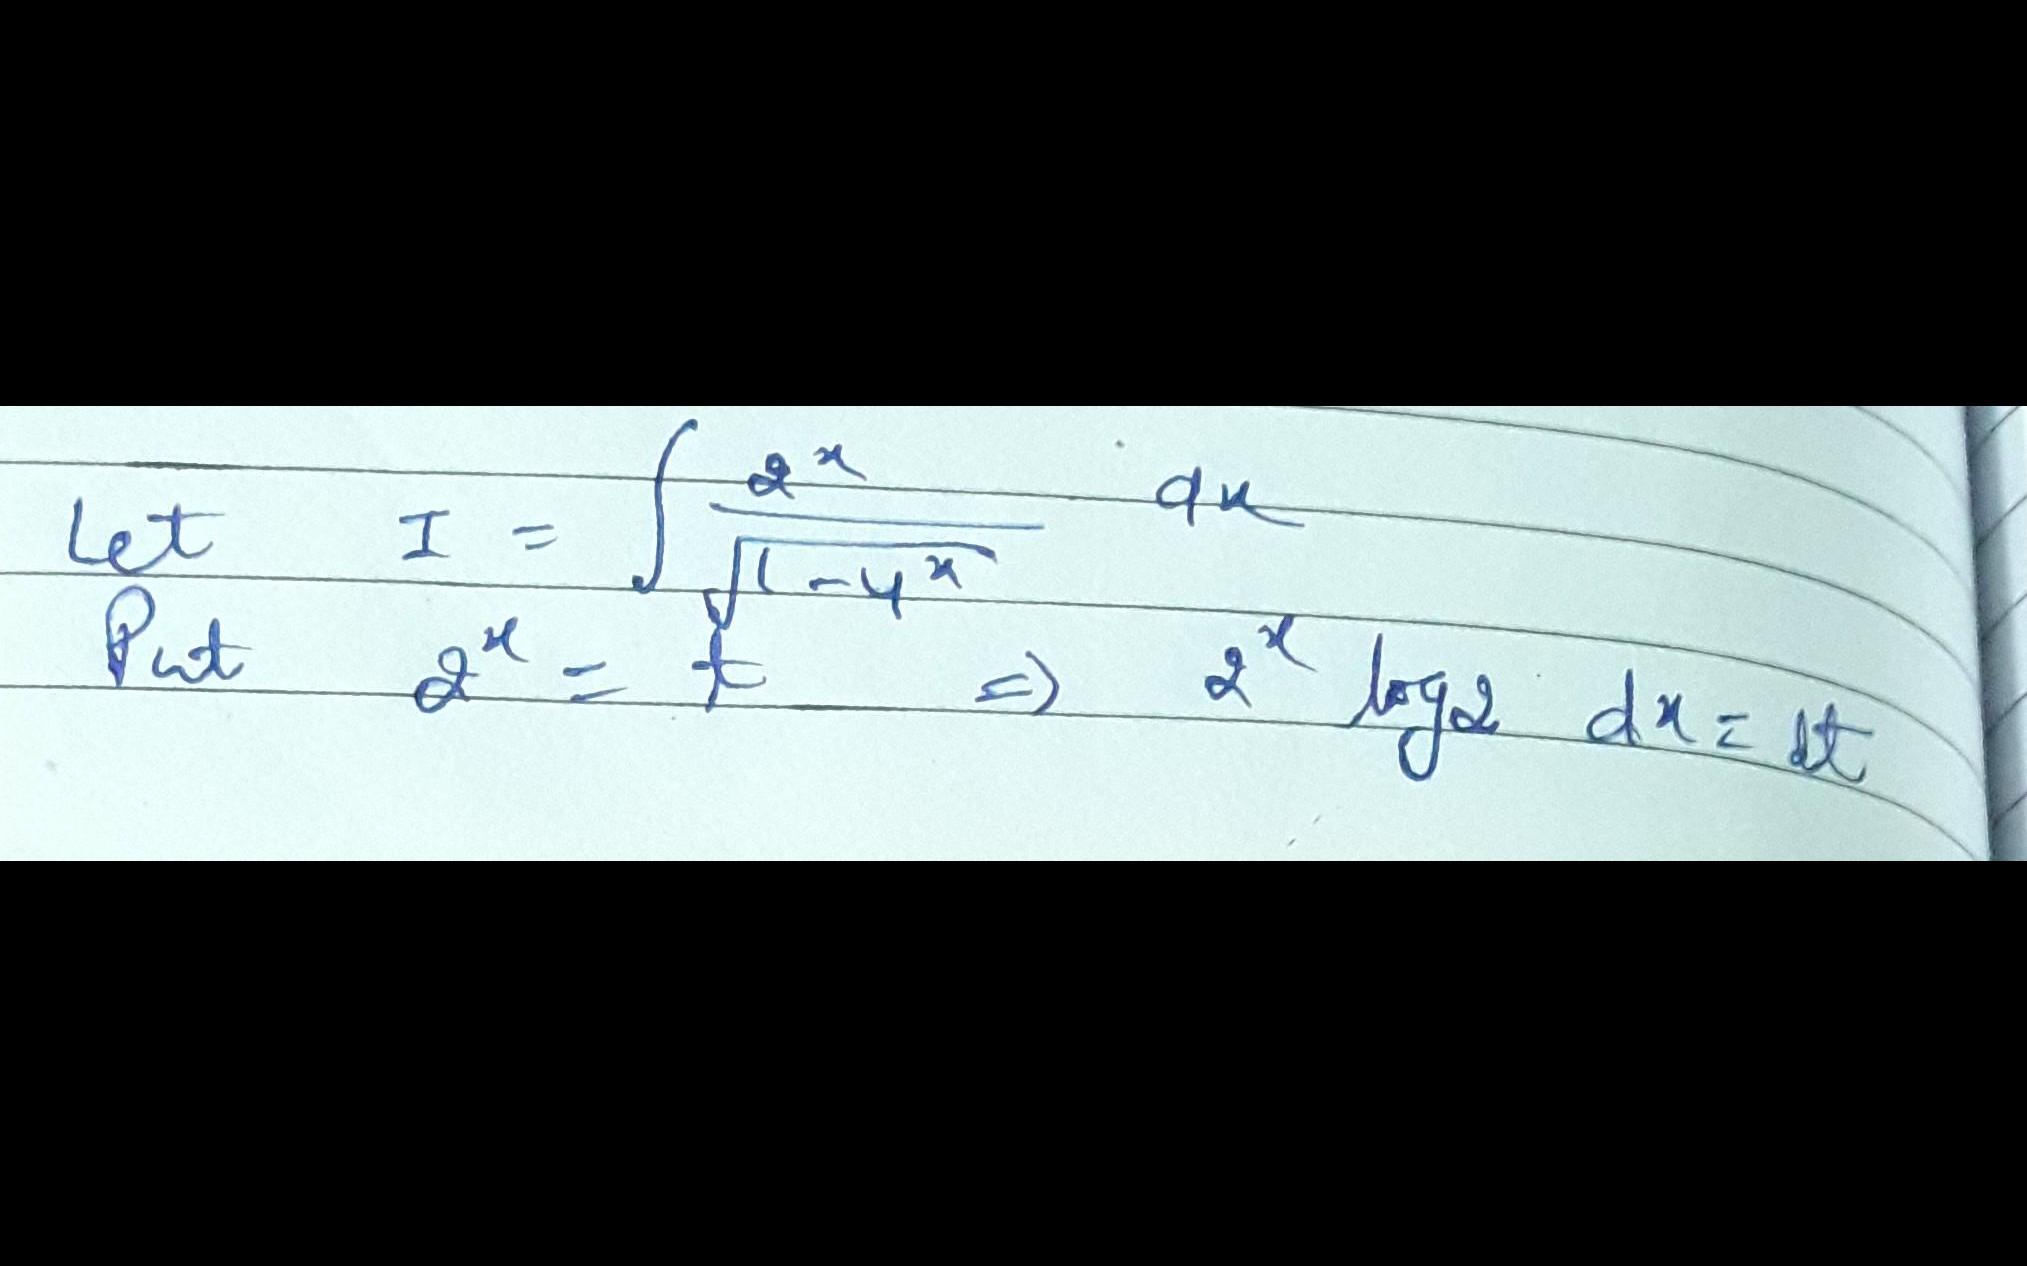 Let I = ∫ 2^x / √(1-4^x) dx
Put 2^x = t ⇒ 2^x log2 dx = dt